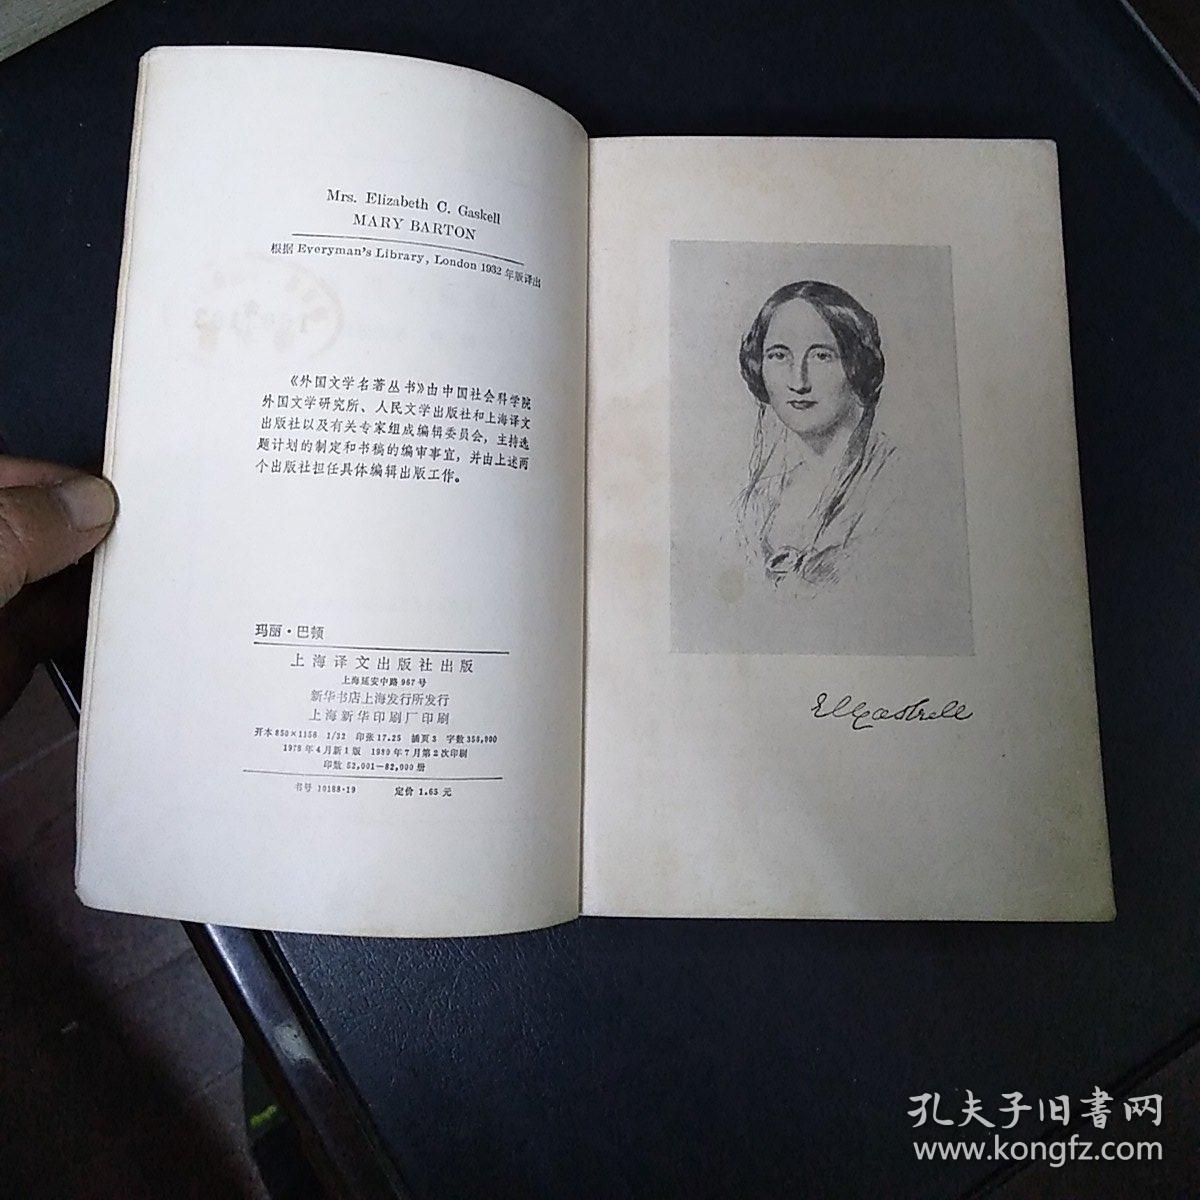 Mrs. Elizabeth C. Gaskell
MARY BARTON
根据 Everyman's Library, London 1932 年版译出
《外国文学名著丛书》由中国社会科学院
外国文学研究所、人民文学出版社和上海译文
出版社以及有关专家组成编辑委员会，主持选
题计划的制定和书稿的编审事宜，并由上述两
个出版社担任具体编辑出版工作。
玛丽·巴顿
上海译文出版社出版
上海延安中路 967 号
新华书店上海发行所发行
上海新华印刷厂印刷
开本 850×1156 1/32 印张 17.25 插页 3 字数 358,000
1978 年 4 月新 1 版 1980 年 7 月第 2 次印刷
印数 52,001—82,000 册
书号 10188·19 定价 1.65 元
E C Gaskell
孔夫子旧书网
www.kongfz.com